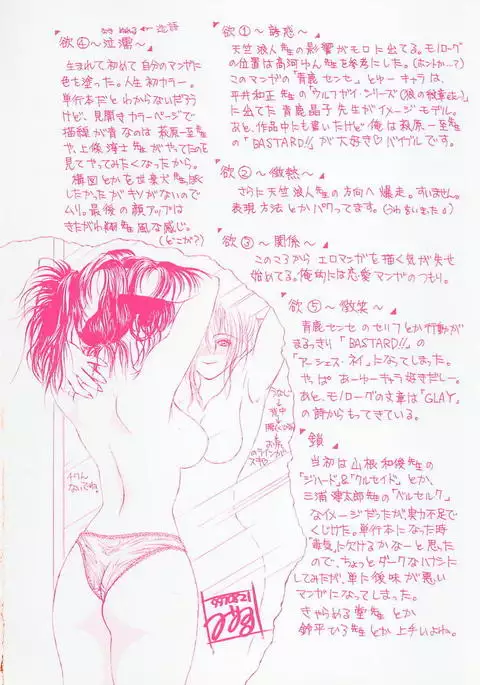 欲①〜誘惑〜
天竺浪人先生の影響がモロに出てる。モノローグ
の位置は高河ゆん先生を参考にした。(ホントか…?)
このマンガの「青鹿センセ」とゆーキャラは、
平井和正先生の「ウルフガイ・シリーズ(狼の紋章etc…)」
に出てた青鹿晶子先生がイメージモデル。
あと、作品中にも書いたけど俺は萩原一至先生
の「BASTARD!!」が大好き♡バイブルです。
欲②〜微熱〜
さらに天竺浪人先生の方向へ爆走。すいません。
表現方法とかパクってます。
欲③〜関係〜
このころからエロマンガを描く気が失せ
始めてる。俺的には恋愛マンガのつもり。
欲④〜泣濡〜
← 造語
生まれて初めて自分のマンガに
色も塗った。人生初カラー。
単行本だとわからないだろう
けど、見開きカラーページで
描線が青なのは萩原一至先生
や、上條淳士先生がやってたのを
見てやってみたくなったから。
構図とかを世棄犬先生風に
したかったがキソがないので
ムリ。最後の顔アップは
きたがわ翔先生風な感じ。
(どこが?)
欲⑤〜微笑〜
青鹿センセのセリフとか行動が
まるっきり「BASTARD!!」の
「アーシェス・ネイ」になってしまった。
やっぱあーゆーキャラ好きだしー。
あと、モノローグの文章は「GLAY」
の詩からもってきている。
鎖
当初は山根和俊先生の
「ジハード」&「クルセイド」とか、
三浦建太郎先生の「ベルセルク」
なイメージだったが実力不足で
くじけた。単行本になった時
「毒気」に欠けるかなーと思った
ので、ちょっとダークなハナシに
してみたが、単に後味が悪い
マンガになってしまった。
きゃらめる堂先生とか
鈴平ひろ先生とか上手いよね。
うなじ
↓
背中
↓
お尻
のラインが
スキ♡